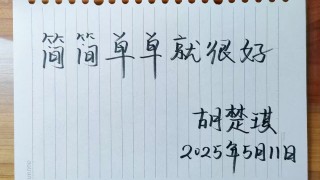 简简单单就很好
胡楚琪
2025年5月11日